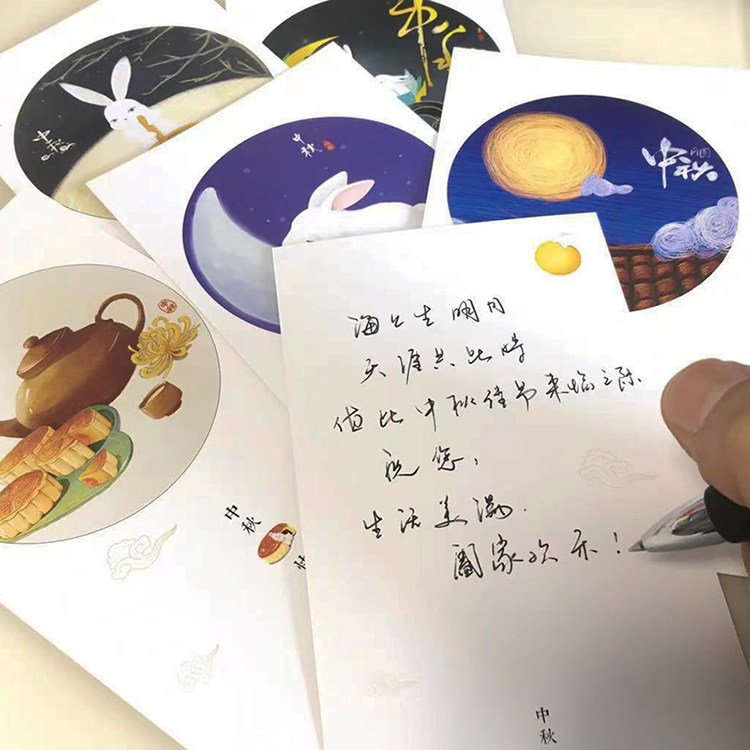 中秋
中秋
中秋
月圆
中秋
海上生明月
天涯共此时
值此中秋佳节来临之际
祝您:
生活美满.
阖家欢乐!
中秋
中秋